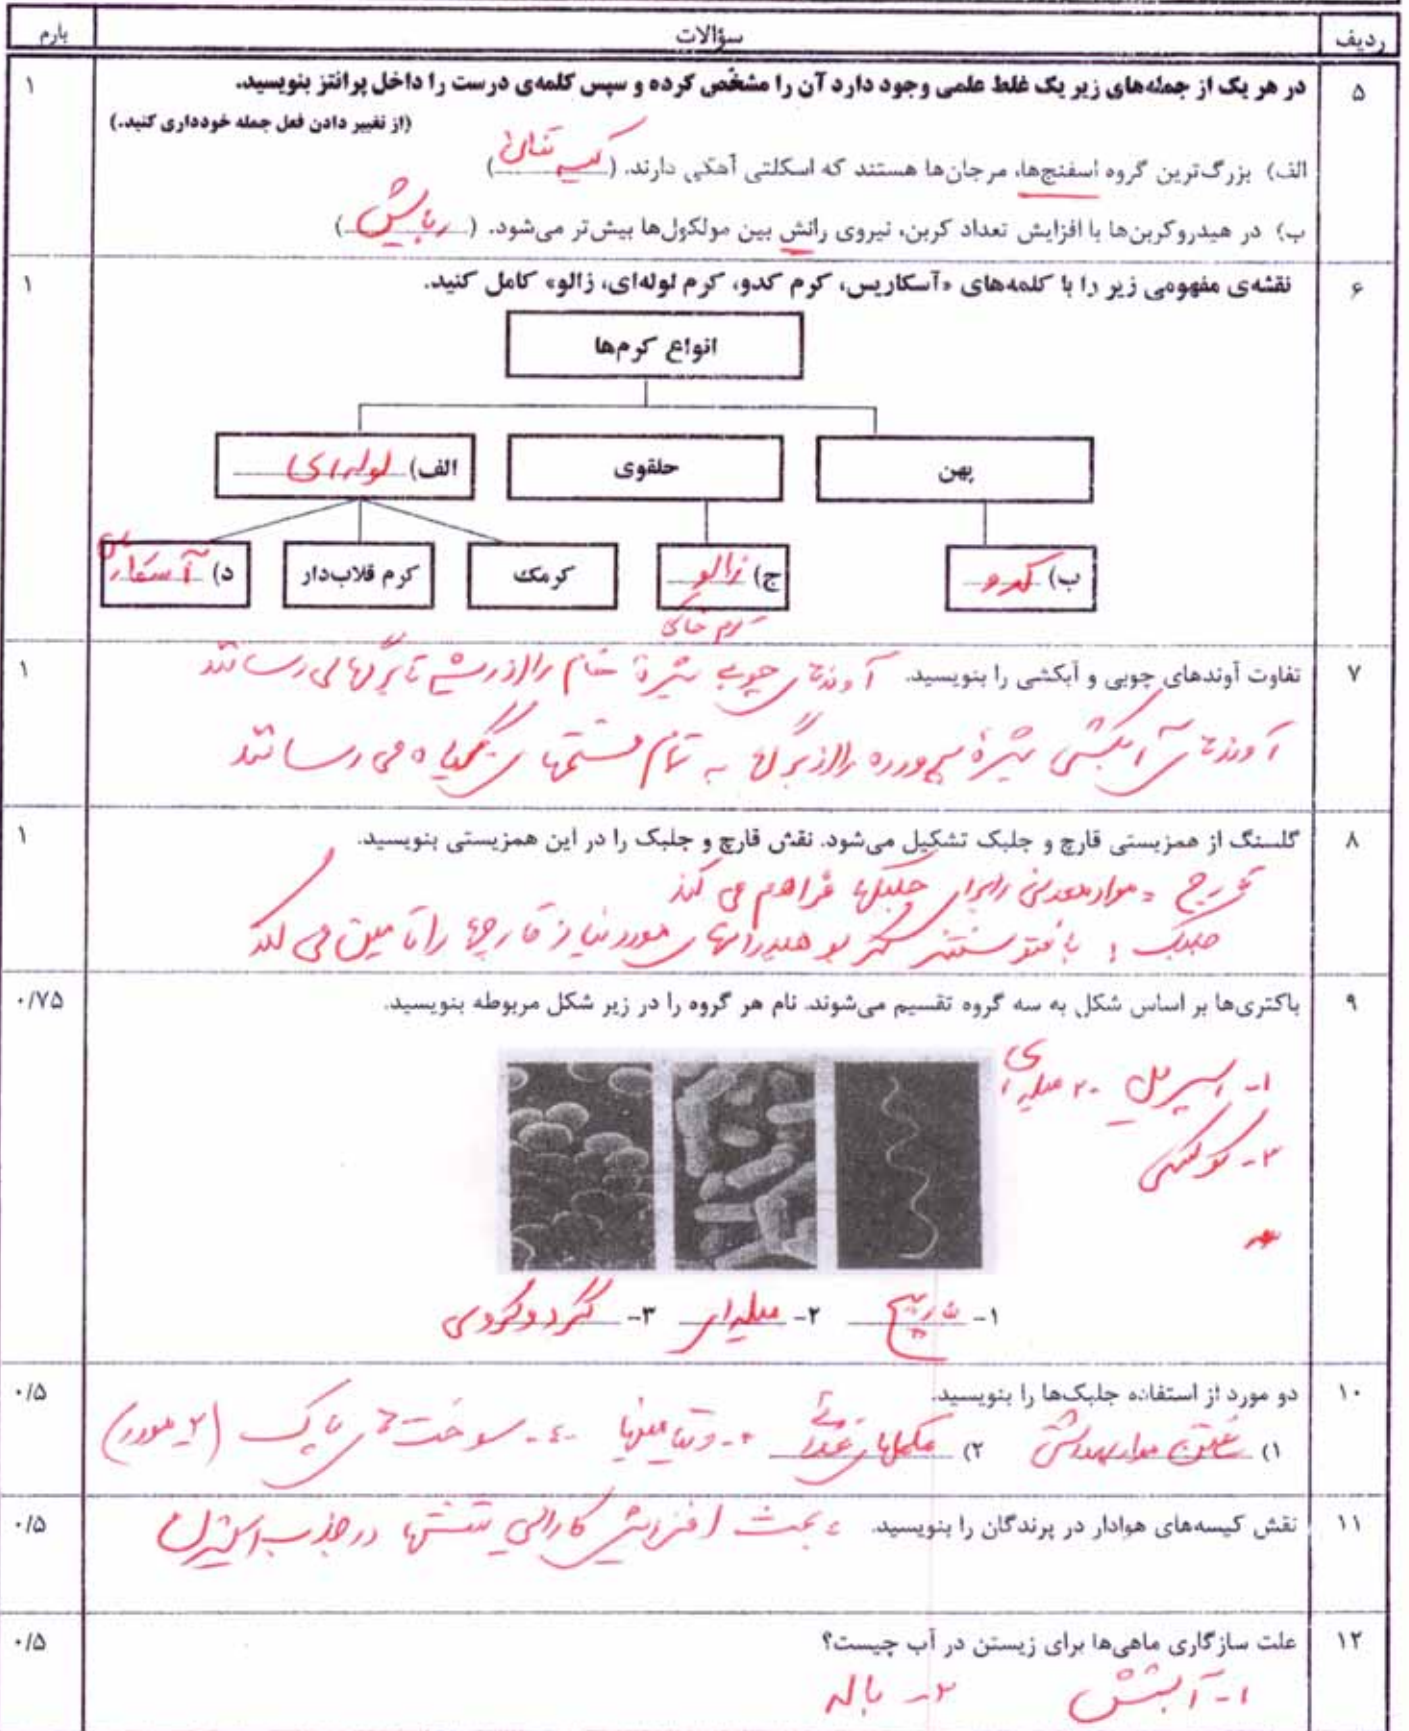 ردیف سؤالات بارم
۵ در هر یک از جمله‌های زیر یک غلط علمی وجود دارد آن را مشخّص کرده و سپس کلمه‌ی درست را داخل پرانتز بنویسید. ۱
(از تغییر دادن فعل جمله خودداری کنید.)
الف) بزرگ‌ترین گروه اسفنج‌ها، مرجان‌ها هستند که اسکلتی آهکی دارند. (کیسه تنان)
ب) در هیدروکربن‌ها با افزایش تعداد کربن، نیروی رانش بین مولکول‌ها بیش‌تر می‌شود. (ربایش)
۶ نقشه‌ی مفهومی زیر را با کلمه‌های «آسکاریس، کرم کدو، کرم لوله‌ای، زالو» کامل کنید. ۱
انواع کرم‌ها
پهن حلقوی الف) لوله‌ای
ب) کدو ج) زالو کرمک کرم قلاب‌دار د) آسکاریس
کرم خاکی
۷ تفاوت آوندهای چوبی و آبکشی را بنویسید. آوندهای چوبی شیرهٔ خام را از ریشه تا برگها می رسانند ۱
آوندهای آبکشی شیرهٔ پرورده را از برگ ها به تمام قسمتهای گیاه می رسانند
۸ گلسنگ از همزیستی قارچ و جلبک تشکیل می‌شود. نقش قارچ و جلبک را در این همزیستی بنویسید. ۱
قارچ = مواد معدنی را برای جلبکها فراهم می کند
جلبک : با فتوسنتز کربوهیدراتهای مورد نیاز قارچها را تامین می کند
۹ باکتری‌ها بر اساس شکل به سه گروه تقسیم می‌شوند. نام هر گروه را در زیر شکل مربوطه بنویسید. ۰/۷۵
۱- اسپریل ۲- میله‌ای
۳- کوکسی
۱- مارپیچ ۲- میله‌ای ۳- گرد و کروی
۱۰ دو مورد از استفاده جلبک‌ها را بنویسید. ۰/۵
۱) ساختن مواد بهداشتی ۲) مکملهای غذایی ۳- ویتامینها ۴- سوخت های پاک (۲ مورد)
۱۱ نقش کیسه‌های هوادار در پرندگان را بنویسید. باعث افزایش کارایی ششها در جذب اکسیژن ۰/۵
۱۲ علت سازگاری ماهی‌ها برای زیستن در آب چیست؟ ۰/۵
۱- آبشش ۲- باله